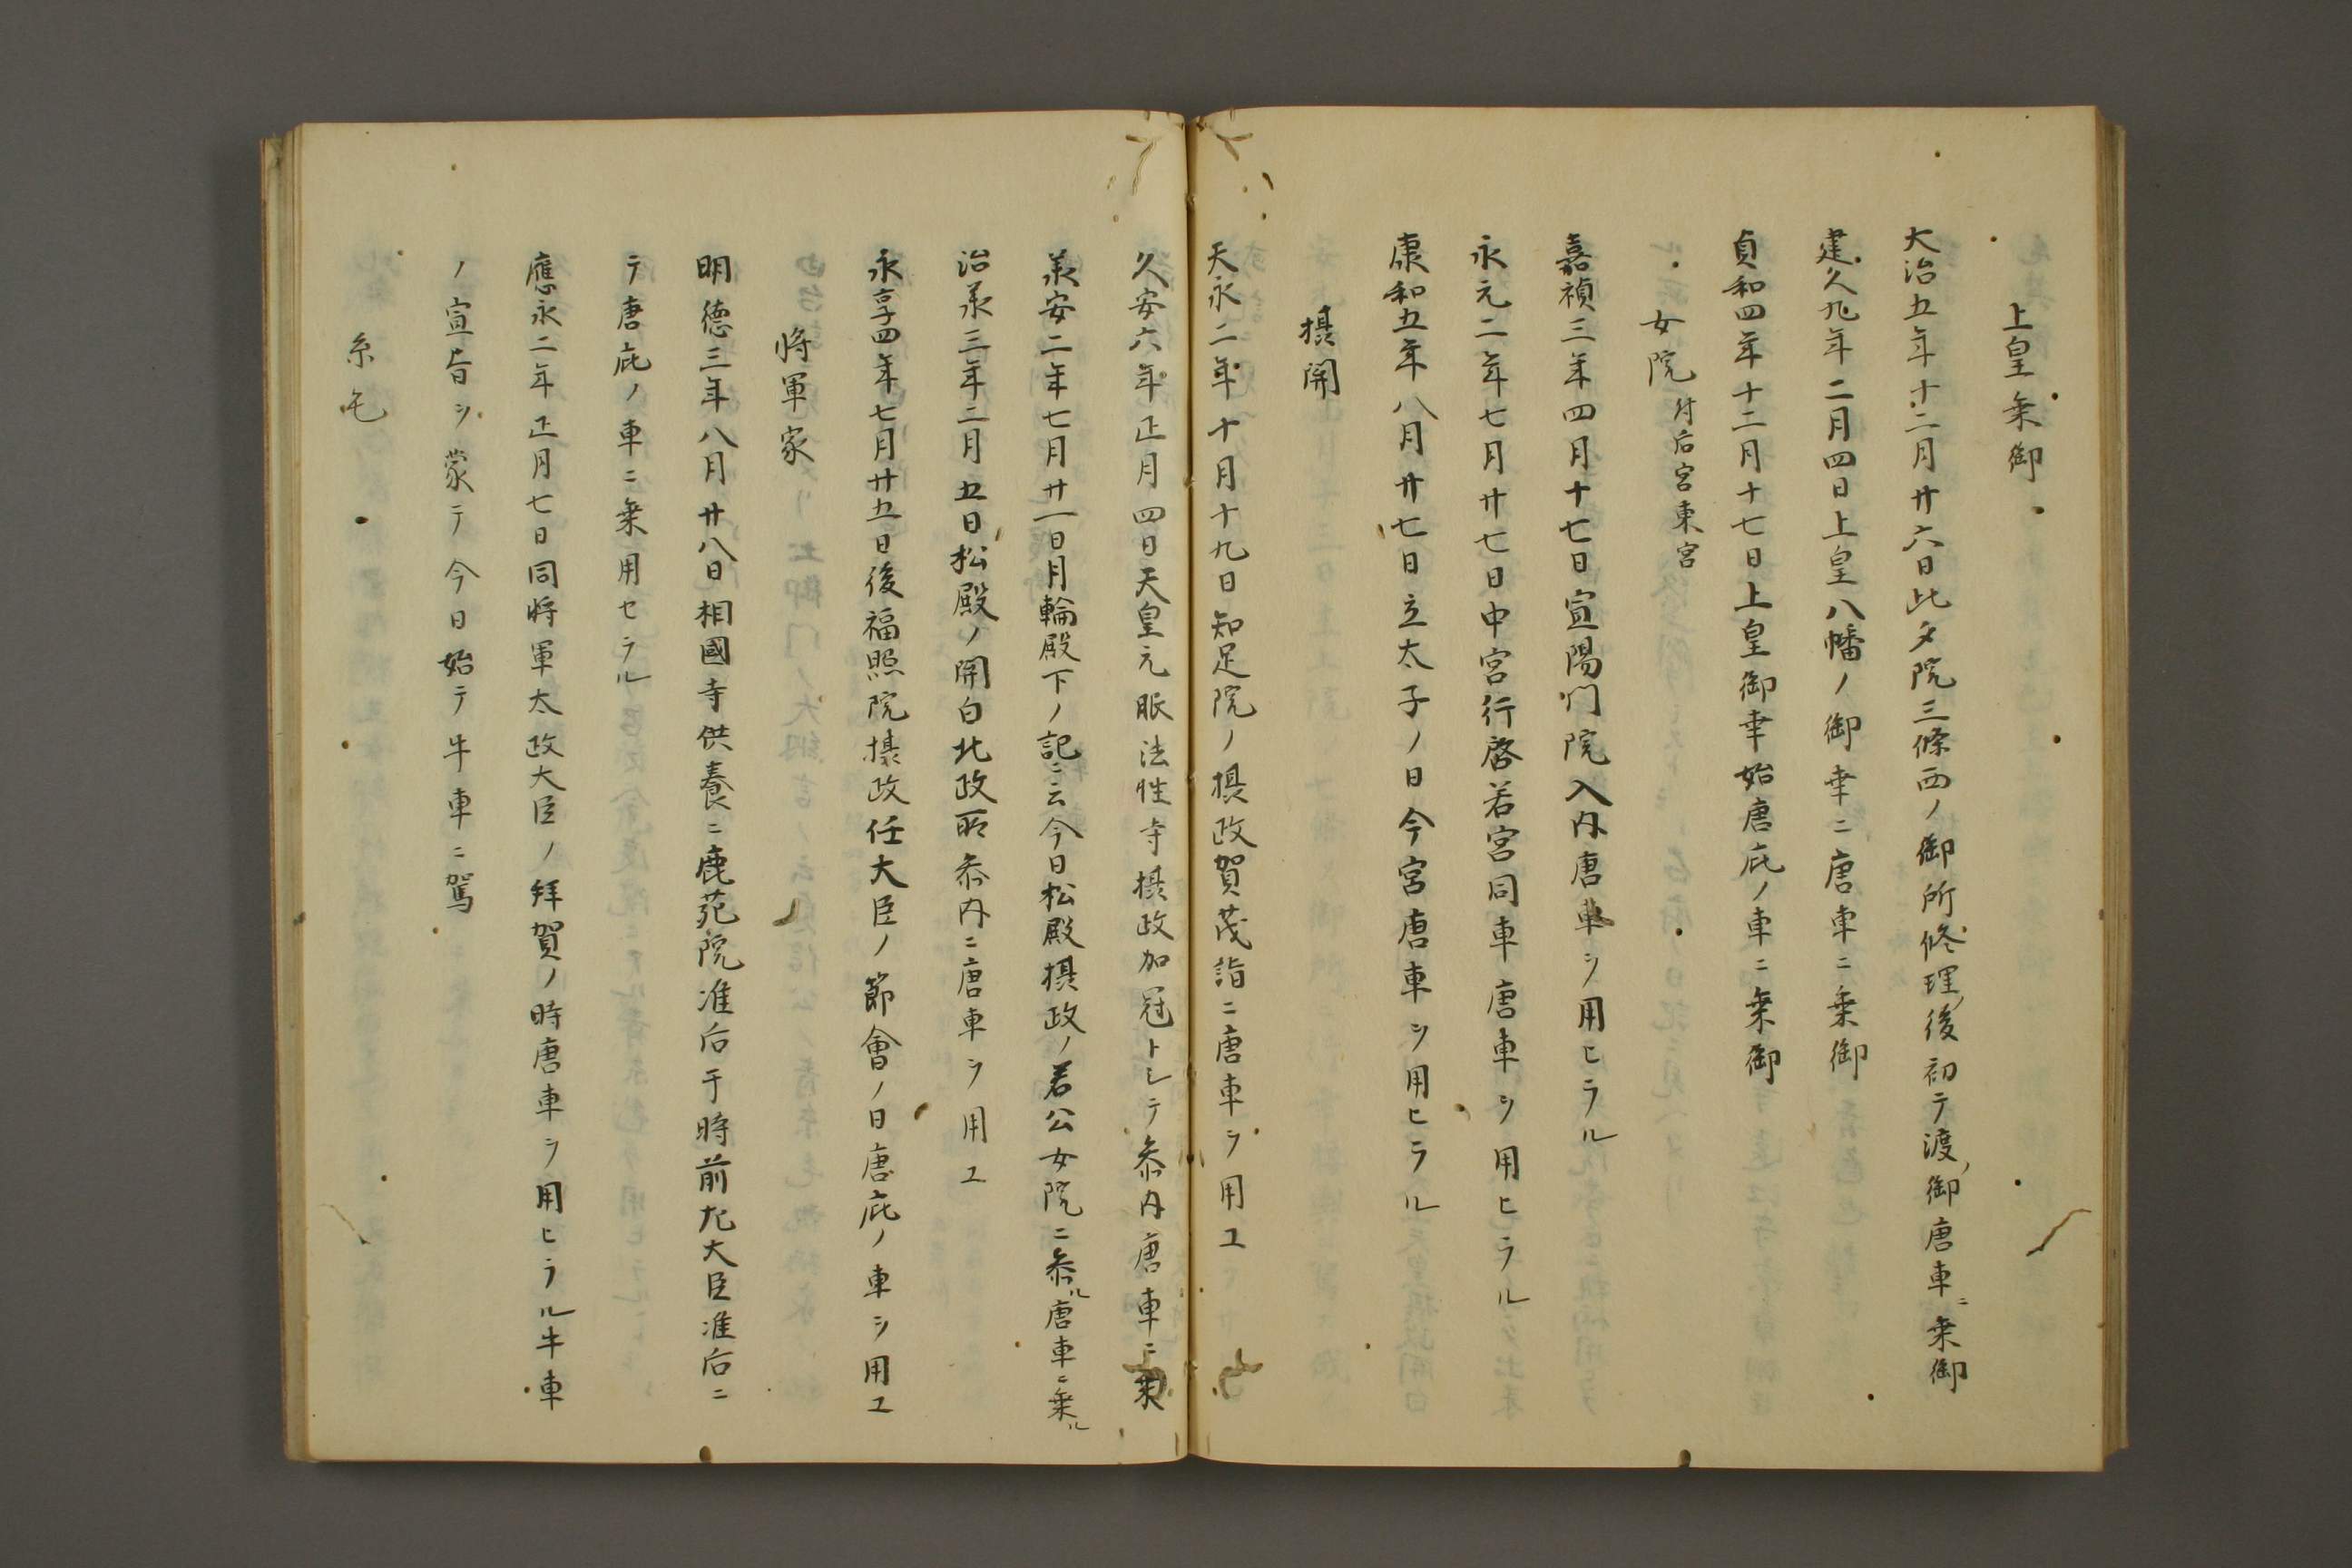 上皇乗御
大治五年十二月廿六日此夕院三條西ノ御所修理ノ後初テ渡御唐車ニ乗御
建久九年二月四日上皇八幡ノ御幸ニ唐車ニ乗御
貞和四年十二月十七日上皇御幸始唐庇ノ車ニ乗御
女院 付后宮東宮
嘉禎三年四月十七日宣陽門院入内唐車ヲ用ヒラル
永元二年七月廿七日中宮行啓若宮同車唐車ヲ用ヒラル
康和五年八月廿七日立太子ノ日今宮唐車ヲ用ヒラル
摂関
天永二年十月十九日知足院ノ摂政賀茂詣ニ唐車ヲ用ユ
久安六年正月四日天皇元服法性寺摂政加冠トシテ参内唐車ニ乗
承安二年七月廿一日月輪殿下ノ記ニ云今日松殿摂政ノ若公女院ニ参ル唐車ニ乗ル
治承三年二月五日松殿ノ関白北政所参内ニ唐車ヲ用ユ
永享四年七月廿五日後福照院攘政任大臣ノ節會ノ日唐庇ノ車ヲ用ユ
将軍家
明徳三年八月廿八日相國寺供養ニ鹿苑院准后于時前左大臣准后ニ
テ唐庇ノ車ニ乗用セラル
應永二年正月七日同将軍太政大臣ノ拜賀ノ時唐車ヲ用ヒラル牛車
ノ宣旨ヲ蒙テ今日始テ牛車ニ駕
糸毛